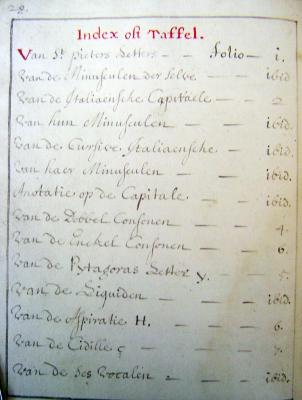 28.
Index oft Taffel.
Van St pieters Letters - - Folio - 1.
van de Minusculen der selve - - ibid
van de Italiaensche Capitaele - - 2
van hun Minusculen - - ibid.
van de Cursive Italiaensche - ibid.
van haer Minusculen - - ibid.
Anotatie op de Capitale - - ibid.
van de Dobbel Consonen - - 4.
van de Enckel Consonen - - 6.
van de Pytagoras Letter y. - - 5.
van de Liquiden - - - ibid.
van de Aspiratie H. - - - 6.
van de Cidille ç - - - 7.
van de ses vocalen - - ibid.